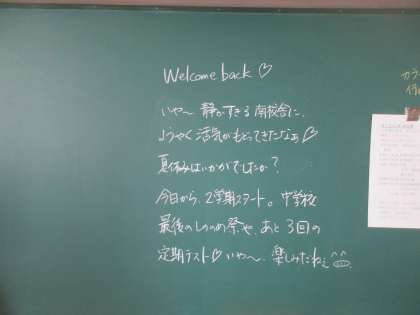 Welcome back ♡
いや〜 静かすぎる南校舎に、
ようやく活気がもどってきたなぁ♡
夏休みはいかがでしたか?
今日から、2学期スタート。中学校
最後のしののめ祭や、あと3回の
定期テスト♡いや〜、楽しみだねぇ